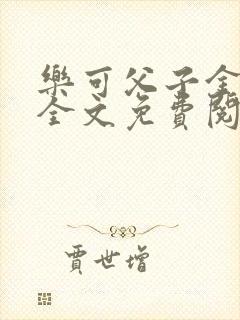 樂可父子全
全文免費閱
賈世增